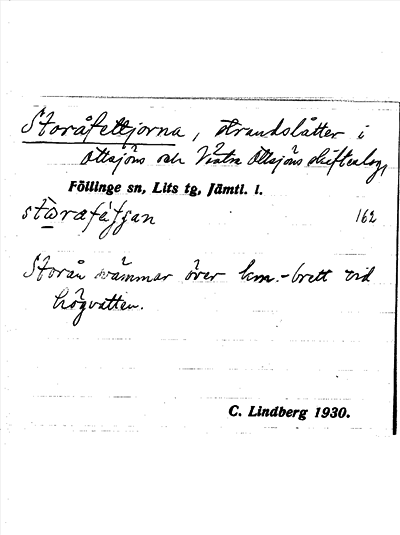 Storåfettjorna, strandslåtter i
Ottsjöns och Västra Ottsjöns skifteslag,
Föllinge sn, Lits tg, Jämtl. l.
162
Storån svämmar över km.-brett vid
högvatten.
C. Lindberg 1930.